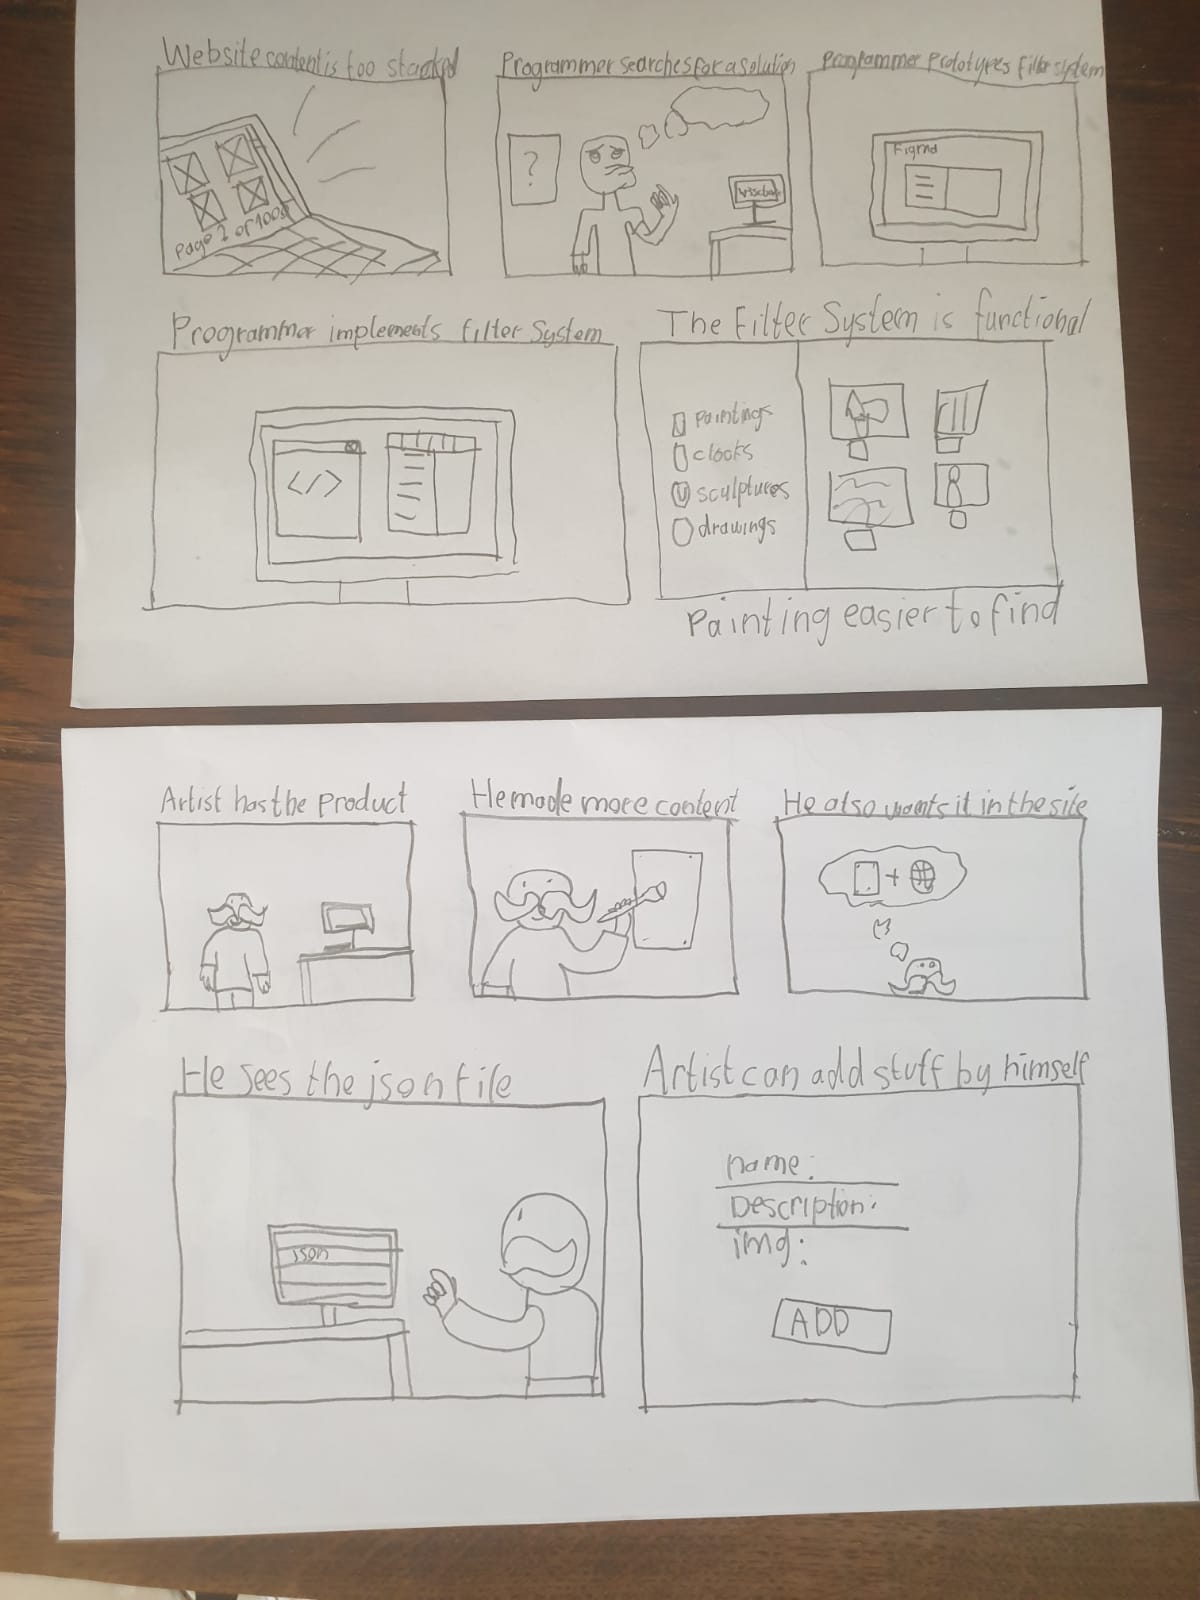 Website content is too stacked
Page 1 of 1000
Programmer searches for a solution
?
Programmer Prototypes Filter system
Figma
Programmer implements Filter System
</>
The Filter System is functional
paintings
clocks
sculptures
drawings
Painting easier to find
Artist has the product
He made more content
He also wants it in the site
+
He sees the json file
json
Artist can add stuff by himself
name:
Description:
img:
ADD